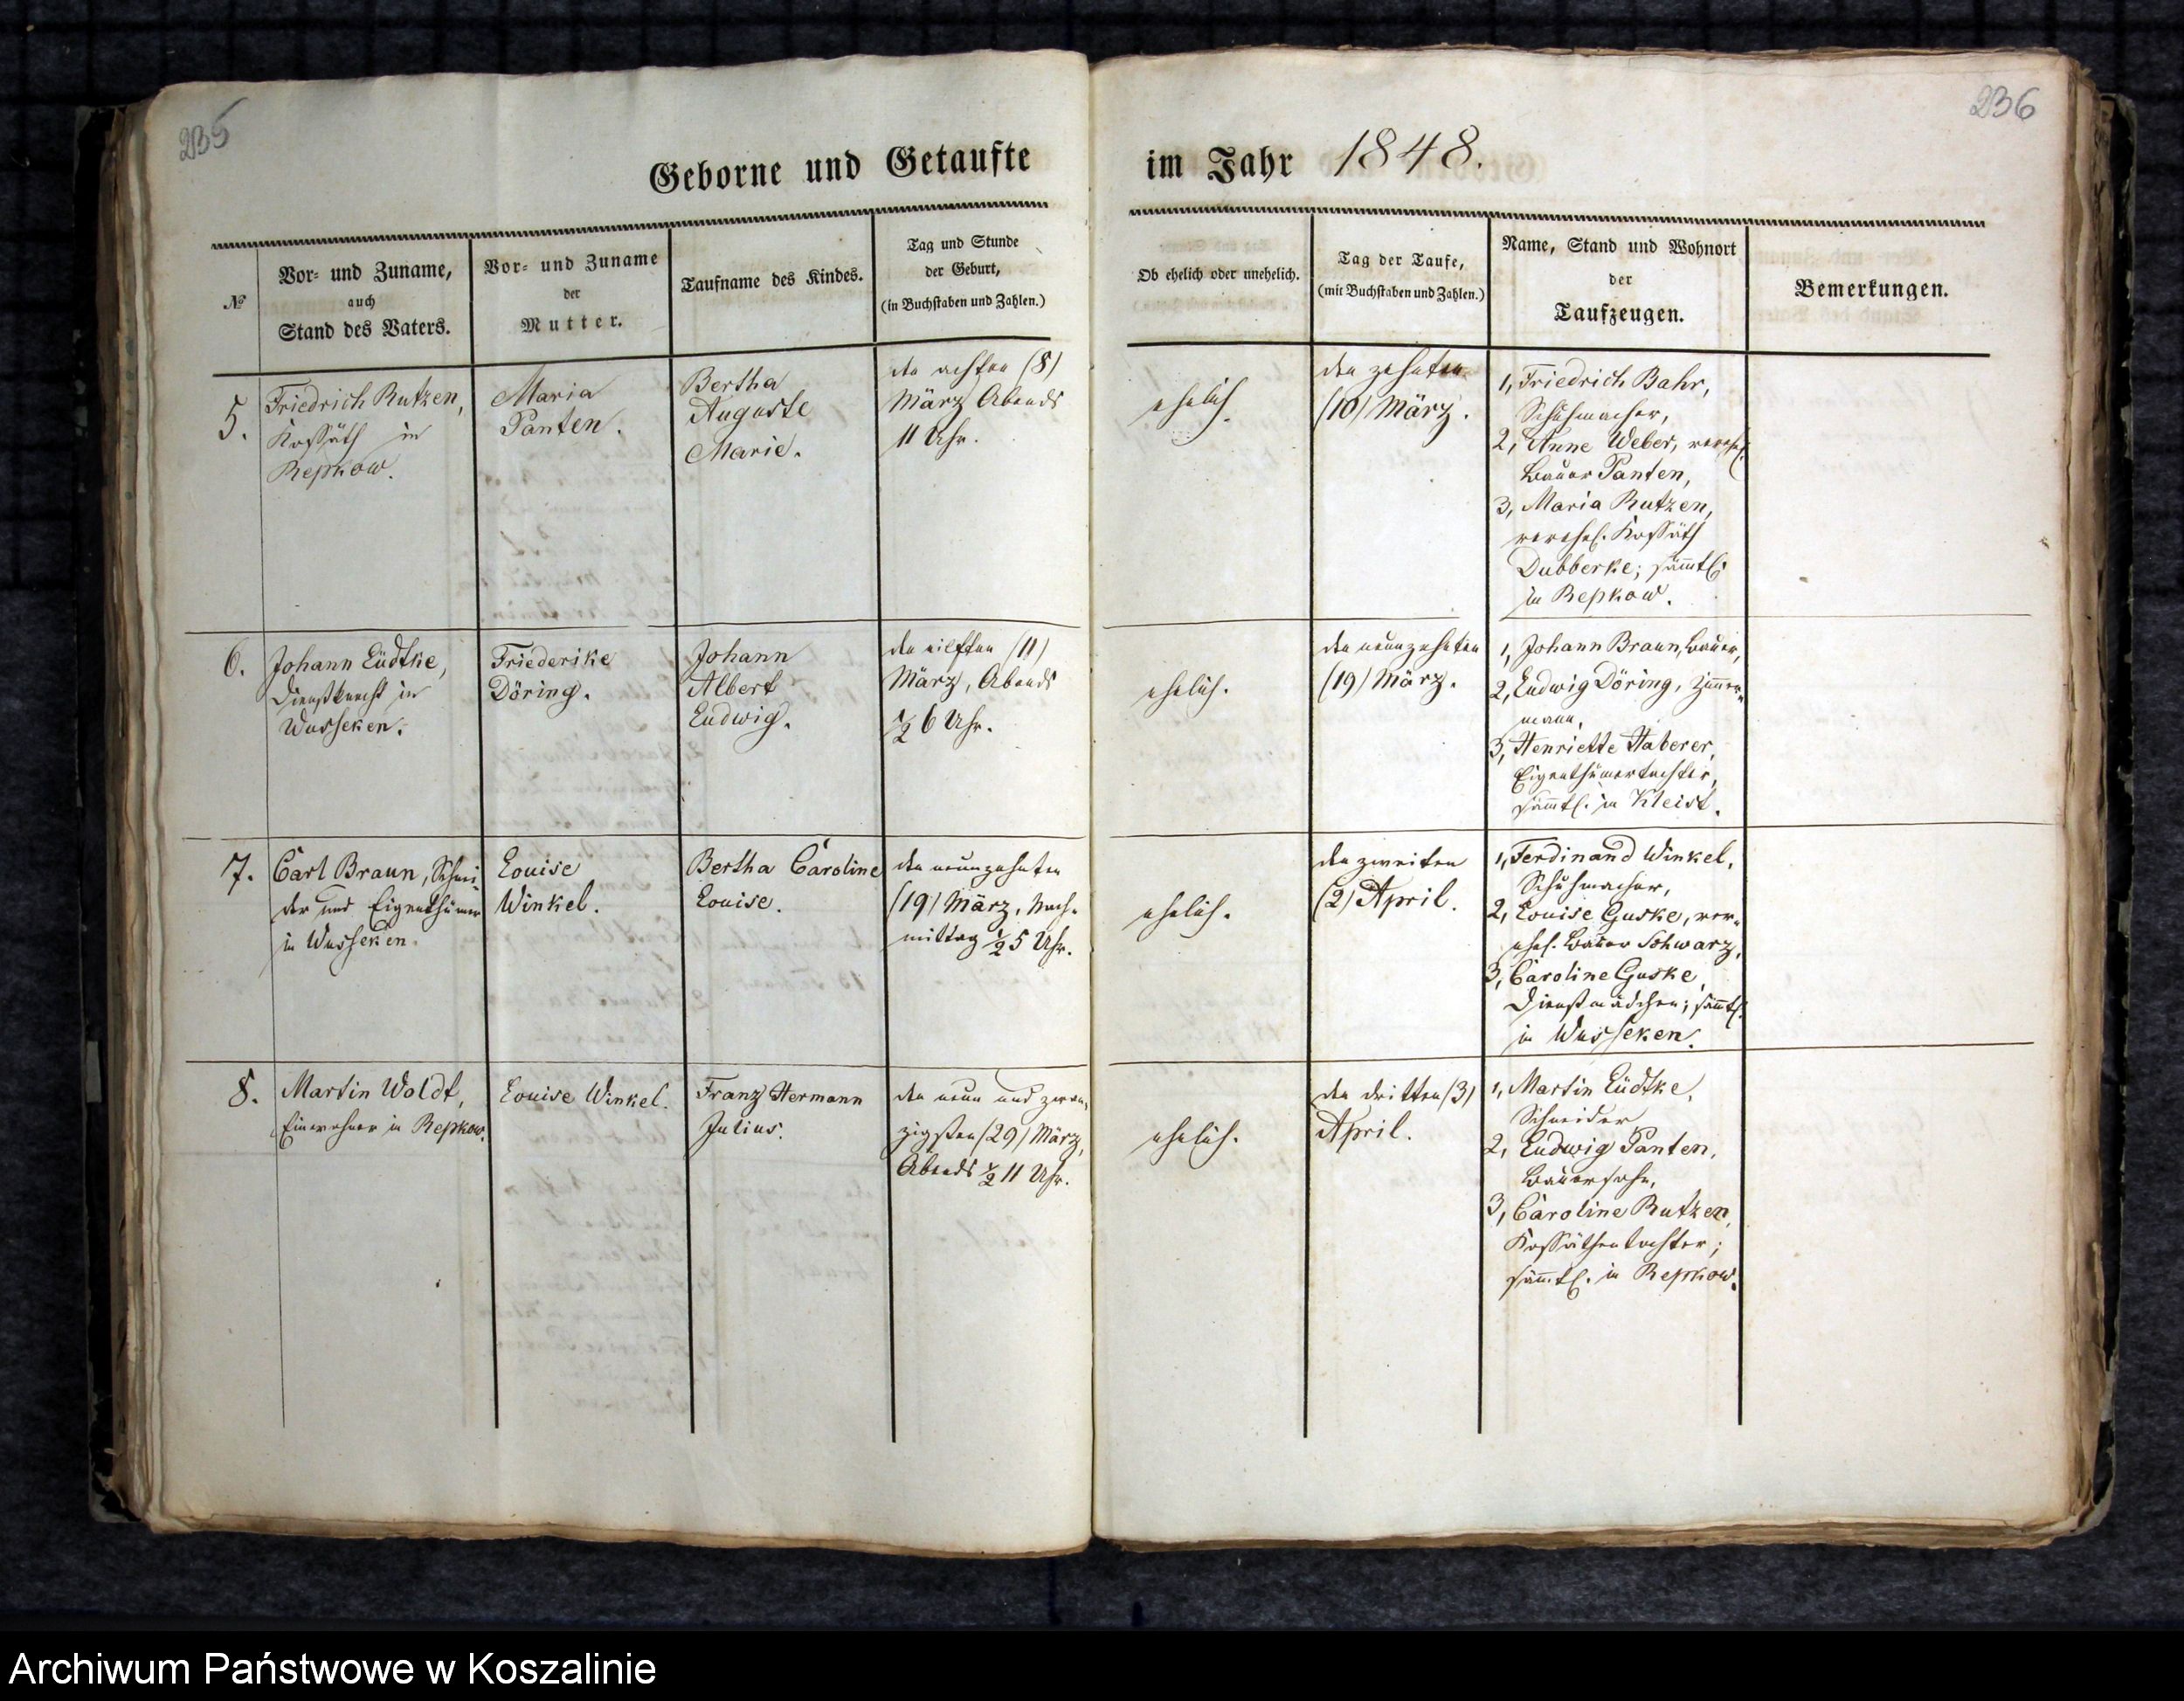 235
236
Geborne und Getaufte
im Jahr 1848.
№
Vor- und Zuname,
auch
Stand des Vaters.
Vor- und Zuname
der
Mutter.
Taufname des Kindes.
Tag und Stunde
der Geburt,
(in Buchstaben und Zahlen.)
Ob ehelich oder unehelich.
Tag der Taufe,
(mit Buchstaben und Zahlen.)
Name, Stand und Wohnort
der
Taufzeugen.
Bemerkungen.
5.
Friedrich Rutzen,
Kossäth in
Repkow.
Maria
Panten.
Bertha
Auguste
Marie.
den achten (8)
März Abends
11 Uhr.
ehelich.
den zehnten
(10) März.
1, Friedrich Bahr,
Schuhmacher,
2, Anne Weber, verehel.
Bauer Panten,
3, Maria Rutzen,
verehel. Kossäth
Dubberke; sämmtl.
in Repkow.
6.
Johann Lüdtke,
Dienstknecht in
Wusseken.
Friederike
Döring.
Johann
Albert
Ludwig.
den eilften (11)
März, Abends
1/2 6 Uhr.
ehelich.
den neunzehnten
(19) März.
1, Johann Braun, Bauer,
2, Ludwig Döring, Zimmer-
mann,
3, Henriette Haberer,
Eigenthümertochter,
sämmtl. in Kleist.
7.
Carl Braun, Schnei-
der und Eigenthümer
in Wusseken.
Louise
Winkel.
Bertha Caroline
Louise.
den neunzehnten
(19) März, Nach-
mittag 1/2 5 Uhr.
ehelich.
den zweiten
(2) April.
1, Ferdinand Winkel,
Schuhmacher,
2, Louise Guske, ver-
ehel. Bauer Schwarz,
3, Caroline Guske,
Dienstmädchen; sämmtl.
in Wusseken.
8.
Martin Woldt,
Einwohner in Repkow.
Louise Winkel.
Franz Hermann
Julius.
den neun und zwan-
zigsten (29) März,
Abends 1/2 11 Uhr.
ehelich.
den dritten (3)
April.
1, Martin Lüdtke,
Schneider
2, Ludwig Panten,
Bauersohn,
3, Caroline Rutzen,
Kossäthentochter;
sämmtl. in Repkow.
Archiwum Państwowe w Koszalinie